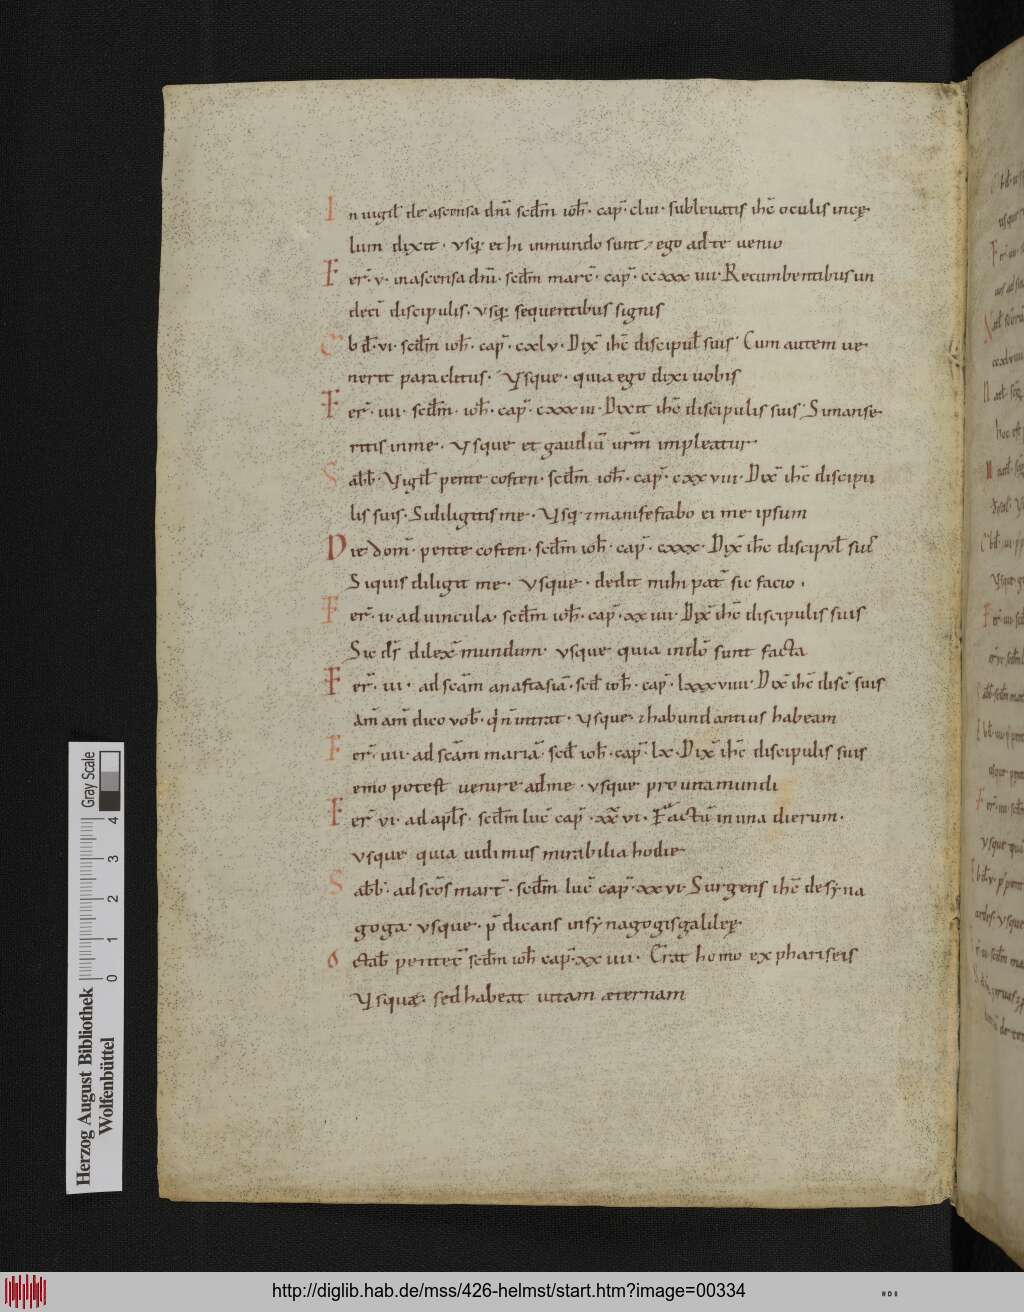 In uigil de ascensa dnī scdm ioh̄. cap̄. clui. subleuatis ih̄c oculis in cę
lum dixit. Usq; et hi in mundo sunt ⁊ ego ad te uenio
Fer̄. v. in ascensa dnī. scdm marc̄. cap̄. ccxxxiiii. Recumbentibus un
deci discipulis. Usq; sequentibus signis
Ebd̄. vi. scdm ioh̄. cap̄. cxlv. Dix̄ ih̄c discipul suis. Cum autem ue
nerit paraclitus. Usque. quia ego dixi uobis
Fer̄. iiii. scdm. ioh̄. cap̄. cxxxiii. Dixit ih̄c discipulis suis. Si manse
ritis in me. Usque et gaudiū ur̄m impleatur
Sabb. Vigil pente costen. scdm ioh̄. cap̄. cxxviiii. Dix̄ ih̄c discipu
lis suis. Si diligitis me. Usq; ⁊ manifestabo ei me ipsum
Die dom̄. pente costen. scdm ioh̄. cap̄. cxxx. Dix̄ ih̄c discipul suis
Si quis diligit me. Usque. dedit mihi pat̄ sic facio.
Fer̄. ii. ad uincula. scdm ioh̄. cap̄. xxiiii. Dix̄ ih̄c discipulis suis
Sic dš dilex̄ mundum. usque quia in dō sunt facta
Fer̄. iii. ad scām anastasiā. scd ioh̄. cap̄. lxxxviiii. Dix̄ ih̄c disc̄ suis
Am̄ am̄ dico uob̄. q̄ n̄ intrat. Usque ⁊ habundantius habeam
Fer̄. iiii. ad scām mariā. scd ioh̄. cap̄. lx. Dix̄ ih̄c discipulis suis
emo potest uenire ad me. usque pro uita mundi
Fer̄ vi. ad apl̄s. scdm luc̄ cap̄. xxxvi. Factū in una dierum.
usque quia uidimus mirabilia hodie
Sabb. ad scōs mart̄. scdm luc̄ cap̄. xxvi. Surgens ih̄c de syna
goga usque. p̄dicans in synagogis galileę.
Octab pentec̄ scdm ioh̄ cap̄. xxiiii. Erat homo ex phariseis
Usquæ. sed habeat uitam æternam
Gray Scale
0 1 2 3 4
Herzog August Bibliothek
Wolfenbüttel
http://diglib.hab.de/mss/426-helmst/start.htm?image=00334